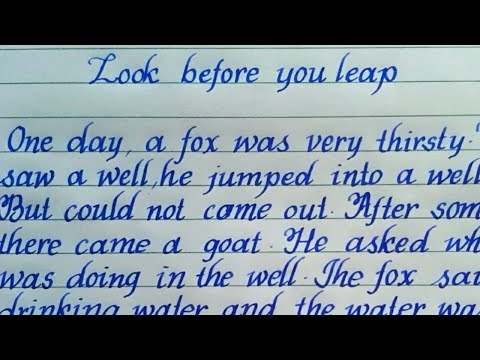 Look before you leap
One day, a fox was very thirsty.
saw a well, he jumped into a well
But could not came out. After som
there came a goat. He asked wh
was doing in the well. The fox sai
drinking water and the water wa